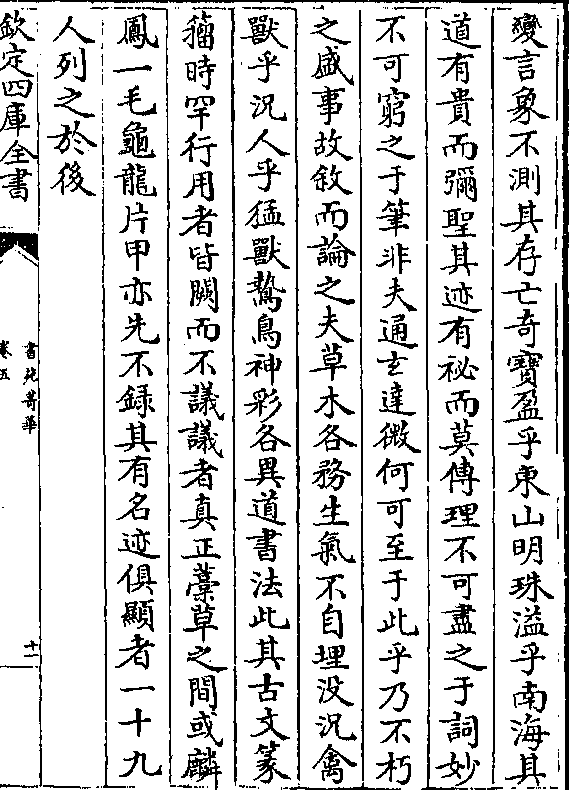 變言象不測其存亡奇寶盈乎東山明珠溢乎南海其
道有貴而彌聖其迹有祕而莫傳理不可盡之于詞妙
不可窮之于筆非夫通玄達微何可至于此乎乃不朽
之盛事故敘而論之夫草木各務生氣不自埋没況禽
獸乎況人乎猛獸鷙鳥神彩各異道書法此其古文篆
籀時罕行用者皆闕而不議議者真正藁草之間或麟
鳳一毛龜龍片甲亦先不錄其有名迹俱顯者一十九
人列之於後
欽定四庫全書
書苑菁華
卷五
十